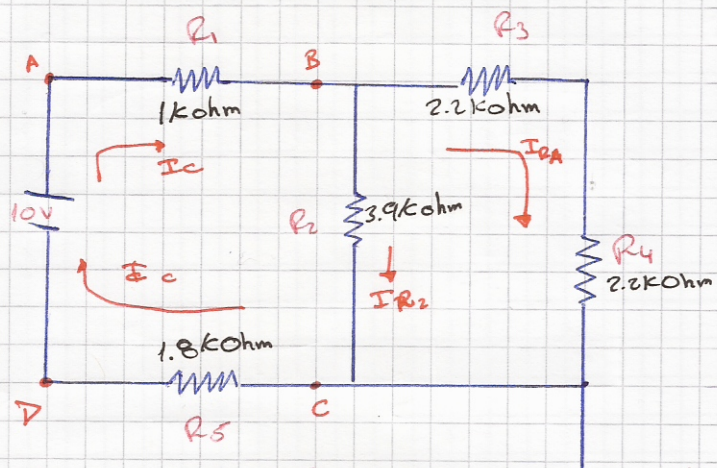 R1
R3
A
B
1Kohm
2.2Kohm
Ic
IRA
10V
R2
3.9Kohm
R4
2.2KOhm
Ic
IR2
1.8KOhm
D
C
R5